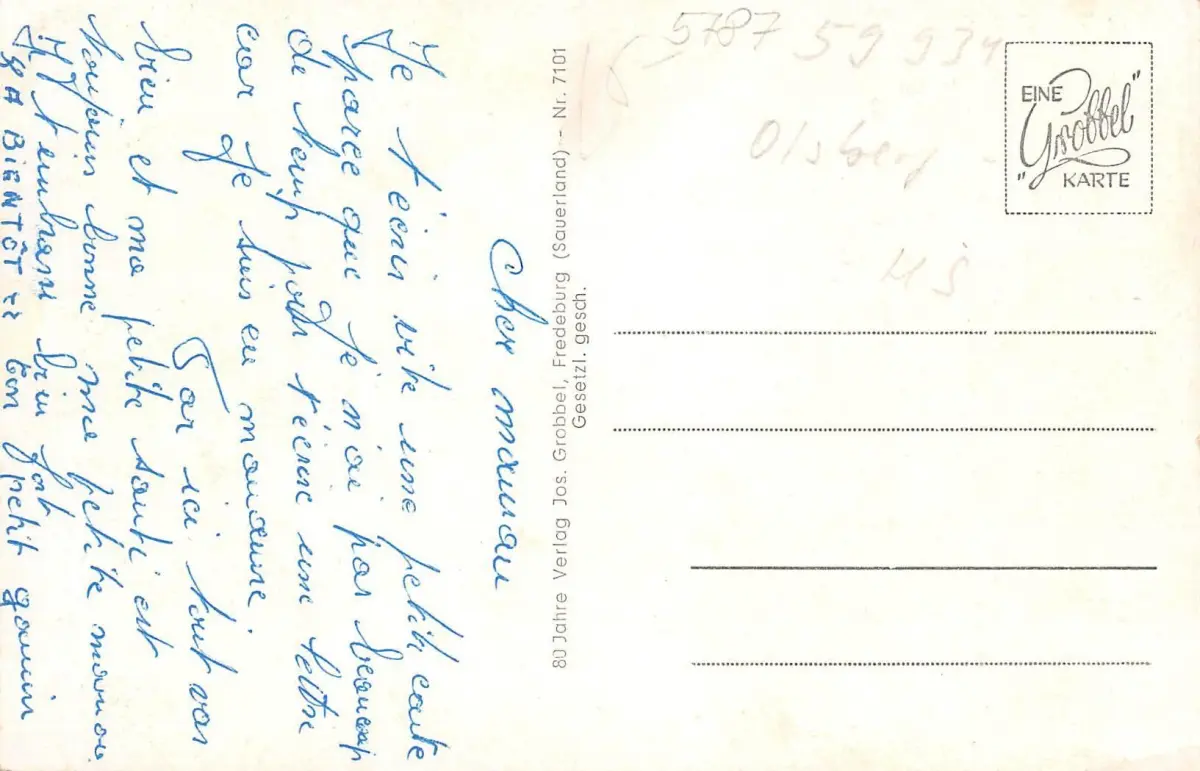 Cher maman
Je t'écris vite une petite carte
parce que je n'ai pas beaucoup
de temp pour t'écrire une lettre
car je suis en manœuvre
Par ici tout vas
bien et ma petite santé est
toujours bonne ma petite maman.
Je t'embrasse bien fort
A BIENTÔT ton petit gamin
80 Jahre Verlag Jos. Grobbel, Fredeburg (Sauerland) – Nr. 7101
Gesetzl. gesch.
5787 59 939
Olsberg -
EINE
"Grobbel"
KARTE